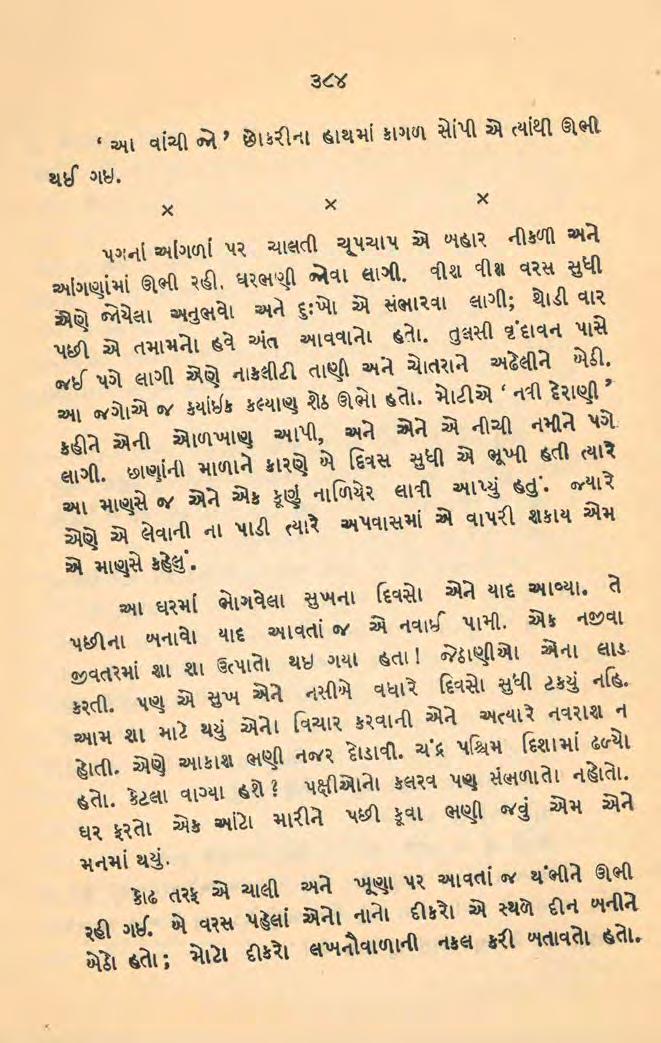 ૩૮૪
‘ આ વાંચી જો ’ છોકરીના હાથમાં કાગળ સોંપી એ ત્યાંથી ઊભી
થઈ ગઈ.
× × ×
પગનાં આંગળાં પર ચાલતી ચૂપચાપ એ બહાર નીકળી અને
આંગણાંમાં ઊભી રહી. ઘરભણી જોવા લાગી. વીશ વીશ વરસ સુધી
એણે જોયેલા અનુભવો અને દુઃખો એ સંભારવા લાગી; થોડી વાર
પછી એ તમામનો હવે અંત આવવાનો હતો. તુલસી વૃંદાવન પાસે
જઈ પગે લાગી એણે નાકલીટી તાણી અને ચોતરાને અઢેલીને બેઠી.
આ જગોએ જ કયાંઈક કલ્યાણ શેઠ ઊભો હતો. મોટીએ ‘ નવી દેરાણી ’
કહીને એની ઓળખાણ આપી, અને એને એ નીચી નમીને પગે
લાગી. છાણાંની માળાને કારણે બે દિવસ સુધી એ ભૂખી હતી ત્યારે
આ માણસે જ એને એક કૂણું નાળિયેર લાવી આપ્યું હતું. જ્યારે
એણે એ લેવાની ના પાડી ત્યારે અપવાસમાં એ વાપરી શકાય એમ
એ માણસે કહેલું.
આ ઘરમાં ભોગવેલા સુખના દિવસો એને યાદ આવ્યા. તે
પછીના બનાવો યાદ આવતાં જ એ નવાઈ પામી. એક નજીવા
જીવતરમાં શા શા ઉત્પાતો થઇ ગયા હતા! જેઠાણીઓ એના લાડ
કરતી. પણ એ સુખ એને નસીબે વધારે દિવસો સુધી ટકયું નહિ.
આમ શા માટે થયું એનો વિચાર કરવાની એને અત્યારે નવરાશ ન
હોતી. એણે આકાશ ભણી નજર દોડાવી. ચંદ્ર પશ્ચિમ દિશામાં ઢળ્યો
હતો. કેટલા વાગ્યા હશે? પક્ષીઓનો કલરવ પણ સંભળાતો નહોતો.
ઘર ફરતો એક આંટો મારીને પછી કૂવા ભણી જવું એમ એને
મનમાં થયું.
કોઢ તરફ એ ચાલી અને ખૂણા પર આવતાં જ થંભીને ઊભી
રહી ગઈ. બે વરસ પહેલાં એનો નાનો દીકરો એ સ્થળે દીન બનીને
બેઠો હતો; મોટો દીકરો લખનૌવાળાની નકલ કરી બતાવતો હતો.